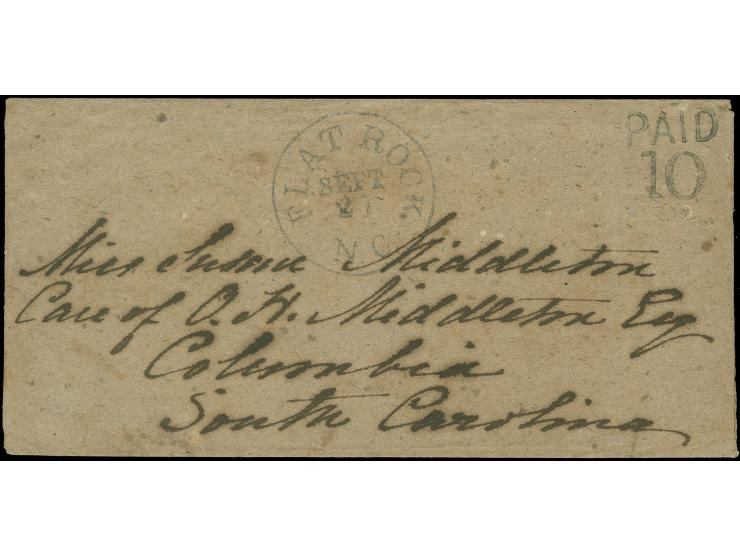 PAID
10
FLAT ROCK.
SEPT
N C
Miss Susan Middleton
Care of O. H. Middleton Esq
Columbia
South Carolina